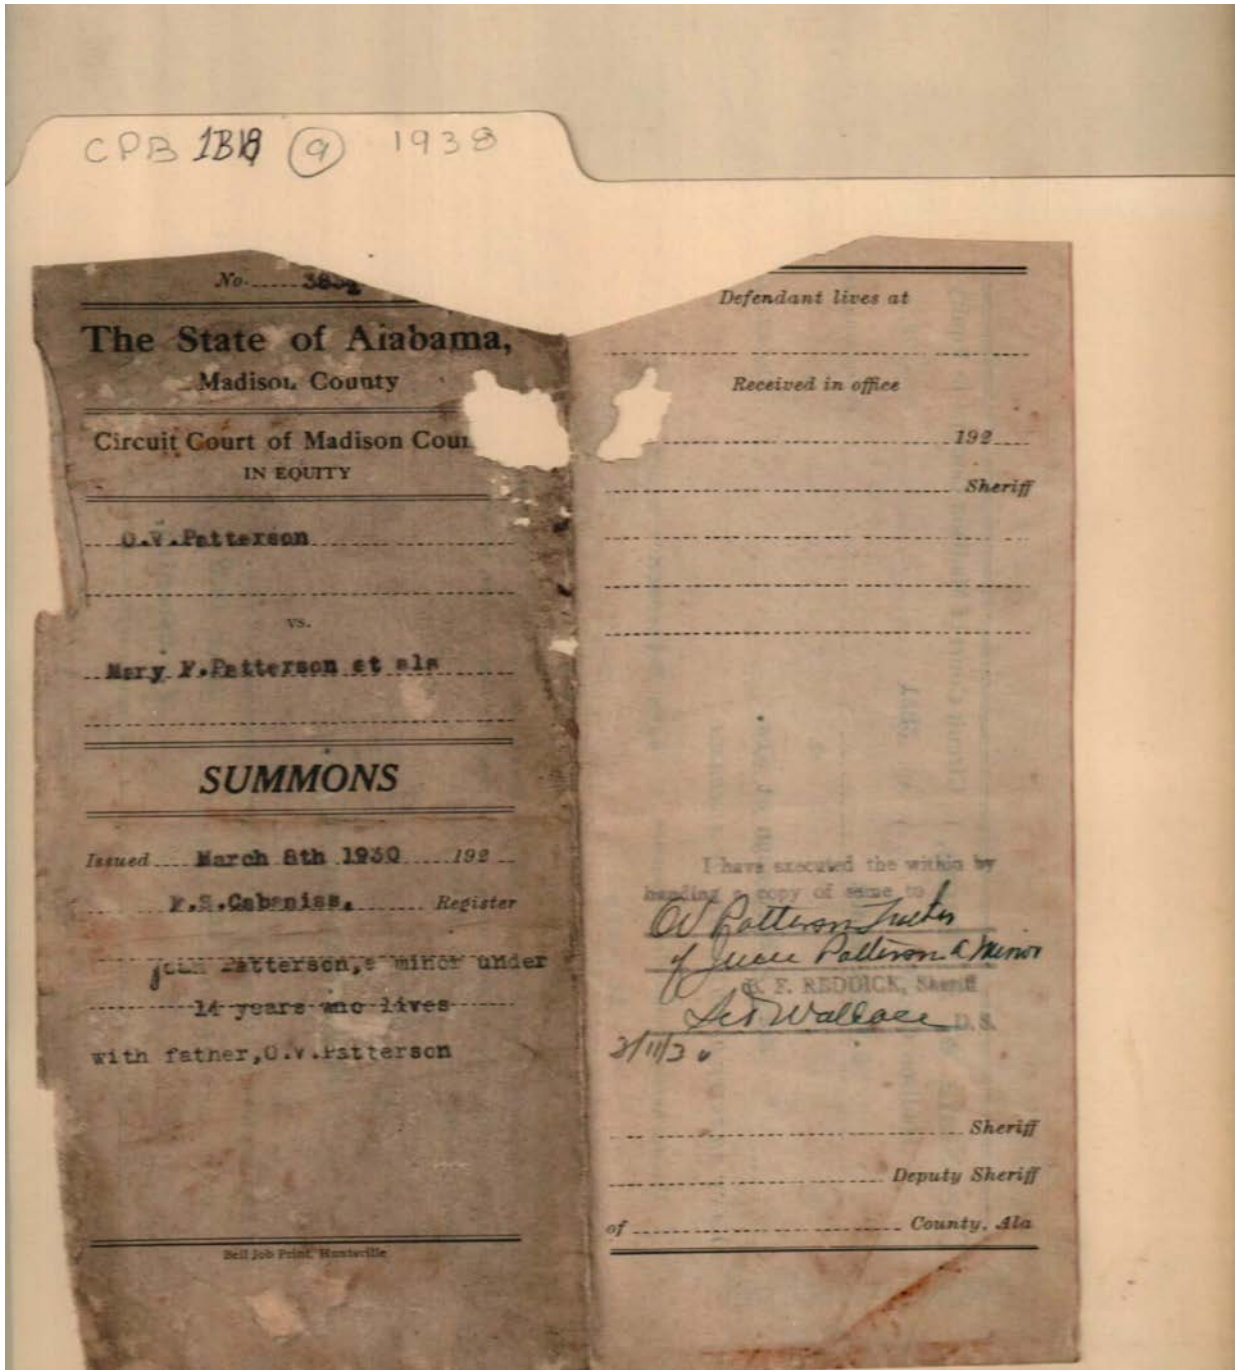 CPB 1938
No. 383
The State of Alabama,
Madison County
Circuit Court of Madison Coun
IN EQUITY
O.V.Patterson
vs.
Mary F.Patterson et als
SUMMONS
Issued March 8th 1930 192
F.S.Cabaniss, Register
Patterson,a minor under
14 years who lives
with father,O.V.Patterson
Bell Job Print, Huntsville
Defendant lives at
Received in office
192
Sheriff
I have executed the within by
handing a copy of same to
OV Patterson
of Patterson a Minor
F. REDDICK, Sheriff
Wallace D.S.
3/11/30
Sheriff
Deputy Sheriff
of County, Ala